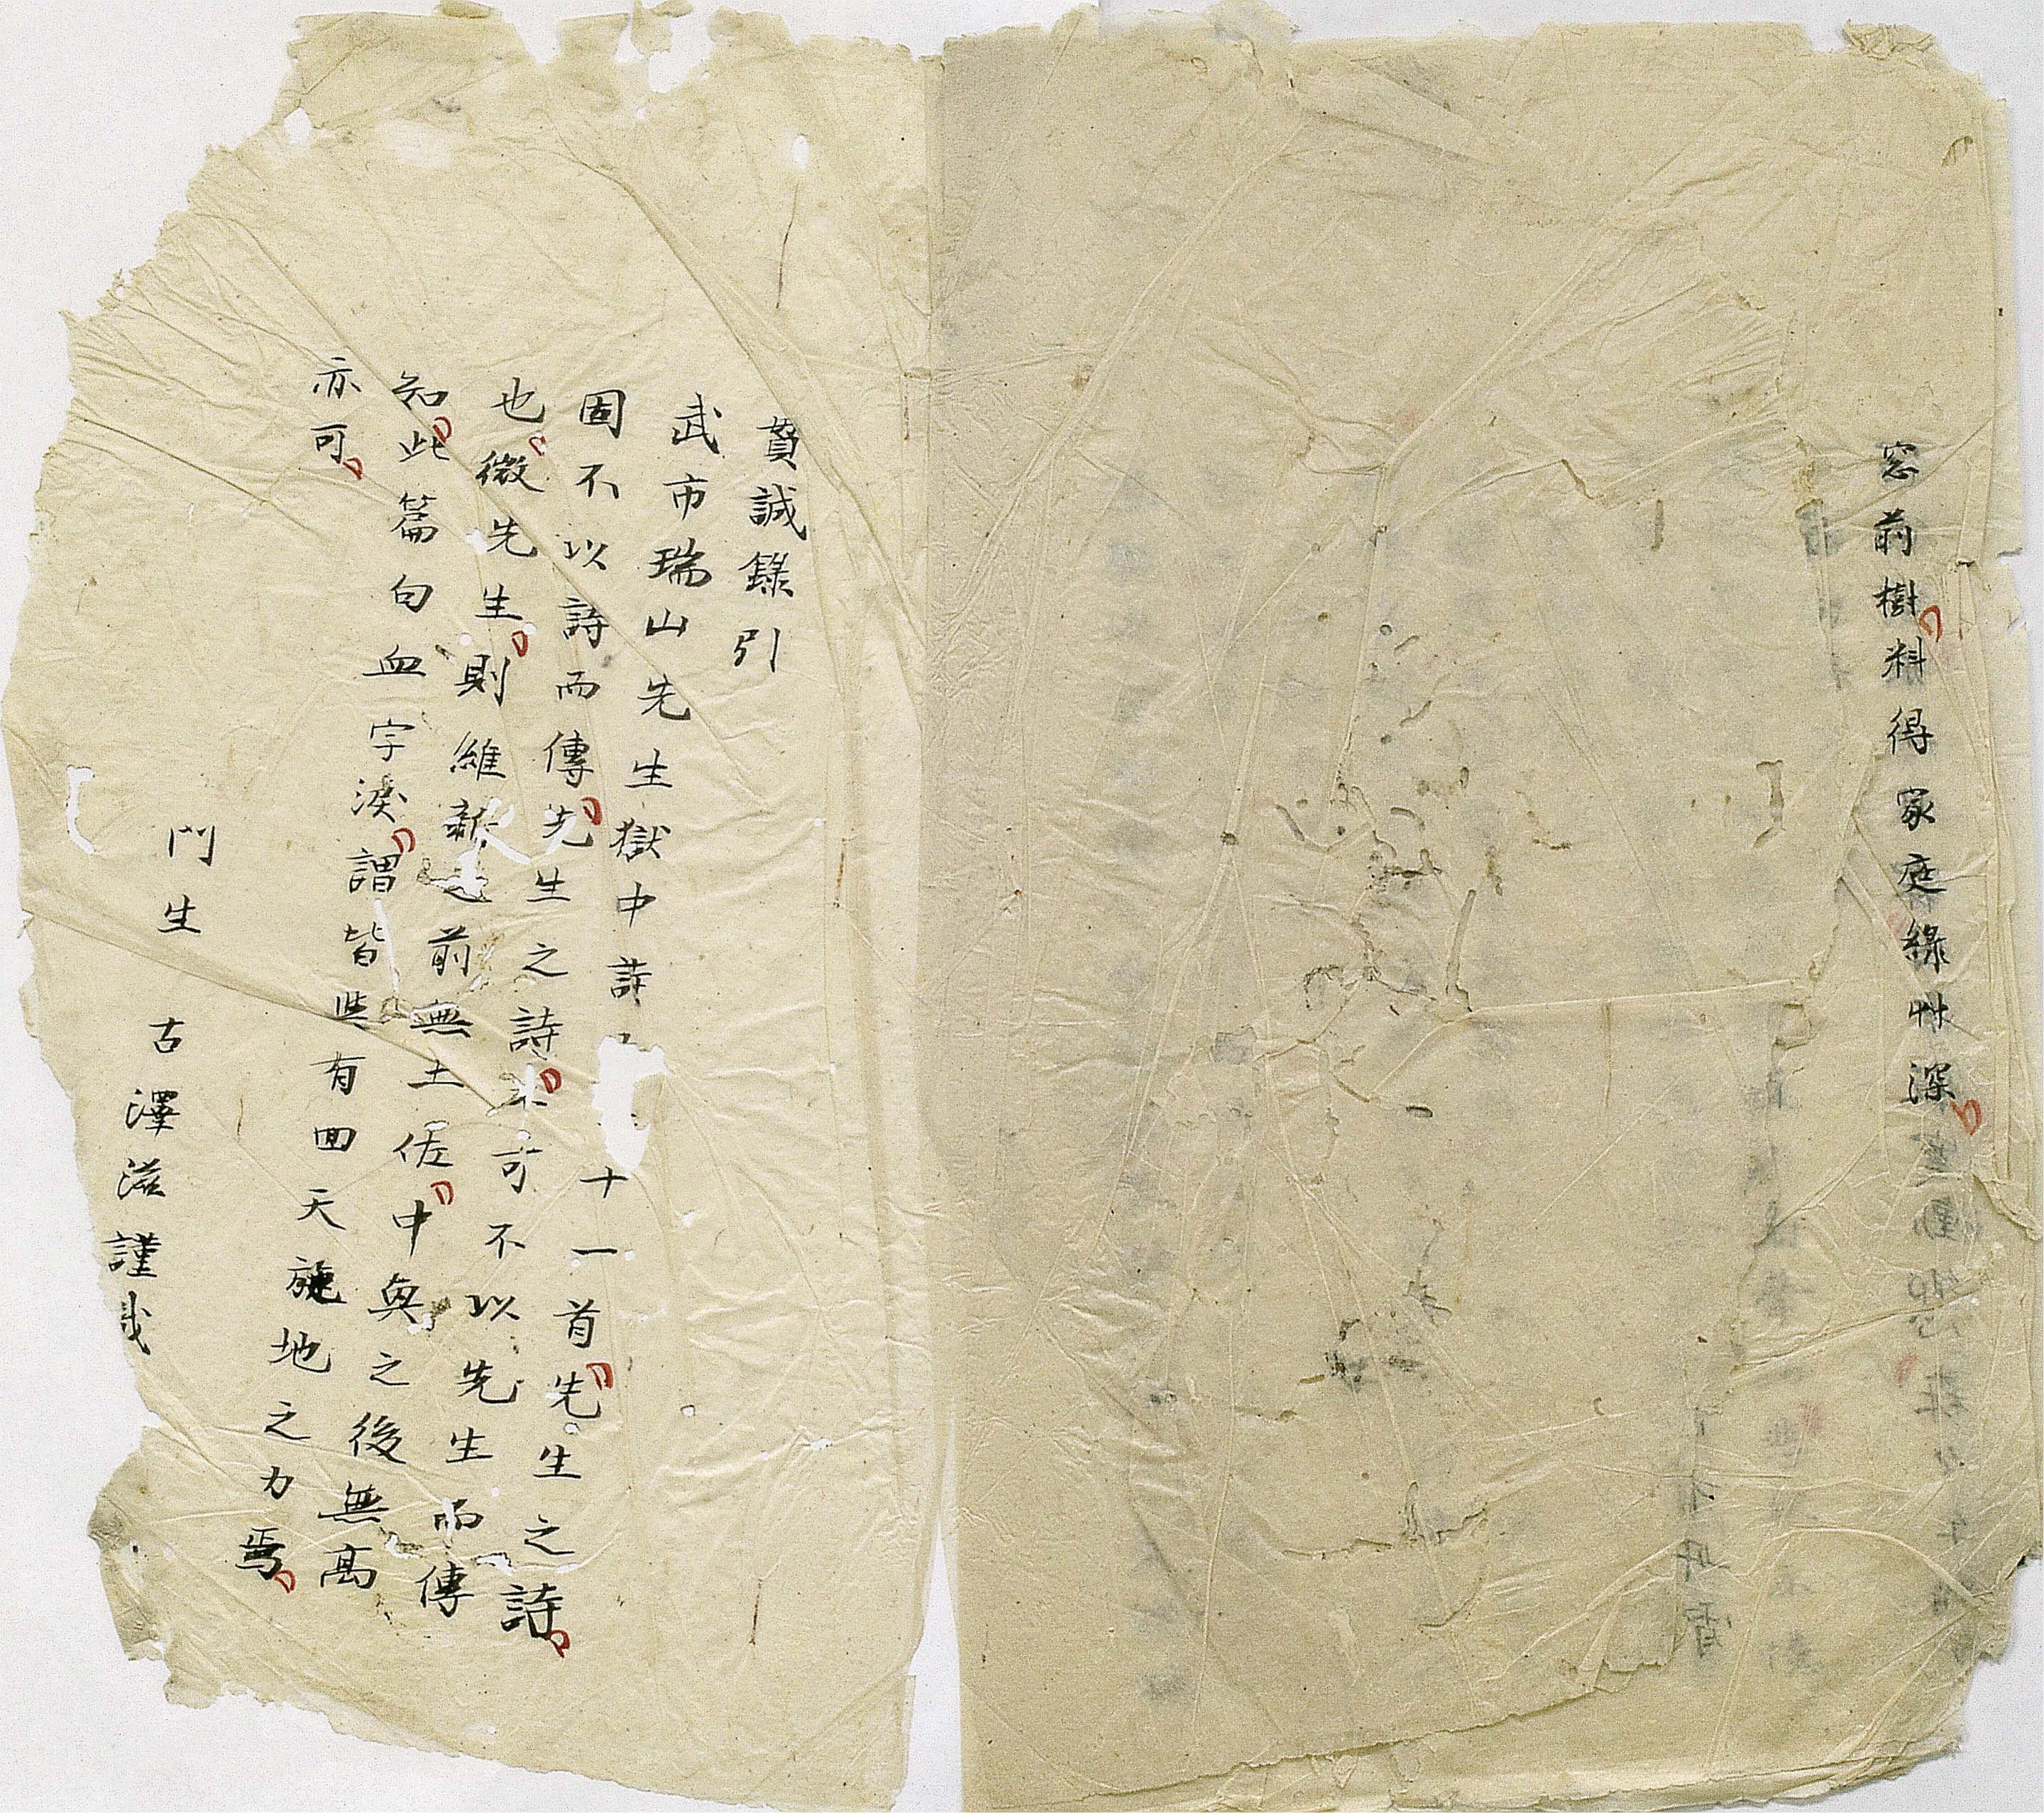 窓前樹料得家庭緑艸深
賛誠錄引
武市瑞山先生獄中詩 十一首先生之詩
固不以詩而傳先生之詩未可不以先生而傳
也微先生則維新之前無土佐中興之後無高
知此篇句血字涙謂皆與有回天旋地之力焉
亦可
門生 古澤滋謹